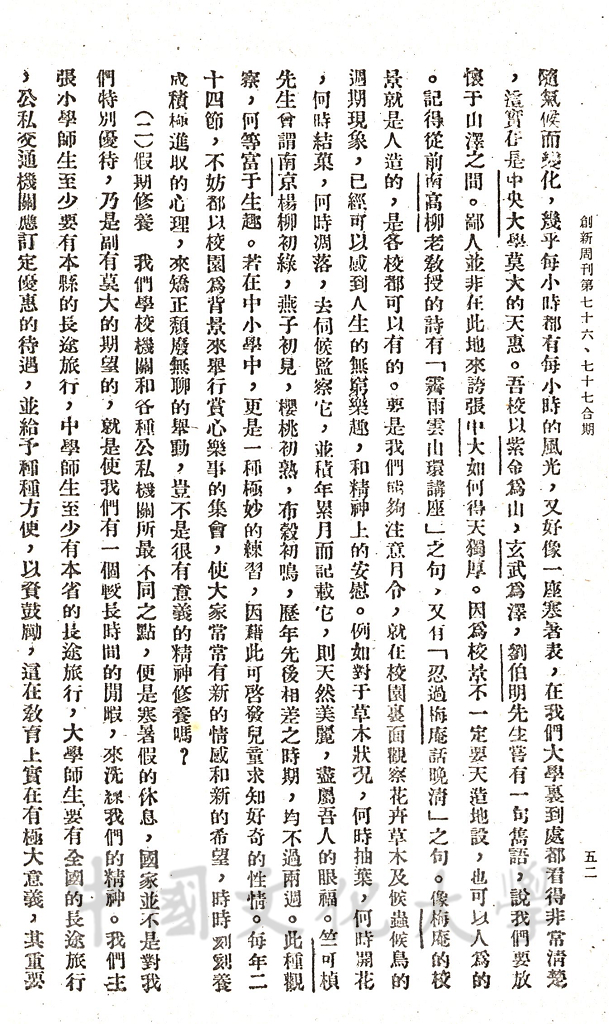 創新周刊第七十六、七十七合期
五二
隨氣候而變化，幾乎每小時都有每小時的風光，又好像一座寒暑表，在我們大學裏到處都看得非常清楚
，這實在是中央大學莫大的天惠。吾校以紫金為山，玄武為澤，劉伯明先生嘗有一句雋語，說我們要放
懷于山澤之間。鄙人並非在此地來誇張中大如何得天獨厚。因為校景不一定要天造地設，也可以人為的
。記得從前南高柳老教授的詩有「霽雨雲山環講座」之句，又有「忍過梅庵話晚清」之句。像梅庵的校
景就是人造的，是各校都可以有的。要是我們能夠注意月令，就在校園裏面觀察花卉草木及候蟲候鳥的
週期現象，已經可以感到人生的無窮樂趣，和精神上的安慰。例如對于草木狀況，何時抽葉，何時開花
，何時結菓，何時凋落，去伺候監察它，並積年累月而記載它，則天然美麗，盡屬吾人的眼福。竺可楨
先生曾謂南京楊柳初綠，燕子初見，櫻桃初熟，布穀初鳴，歷年先後相差之時期，均不過兩週。此種觀
察，何等富于生趣。若在中小學中，更是一種極妙的練習，因藉此可啓發兒童求知好奇的性情。每年二
十四節，不妨都以校園為背景來舉行賞心樂事的集會，使大家常常有新的情感和新的希望，時時刻刻養
成積極進取的心理，來矯正頹廢無聊的舉動，豈不是很有意義的精神修養嗎？
（二）假期修養　我們學校機關和各種公私機關所最不同之點，便是寒暑假的休息，國家並不是對我
們特別優待，乃是副有莫大的期望的，就是使我們有一個較長時間的閒暇，來洗練我們的精神。我們主
張小學師生至少要有本縣的長途旅行，中學師生至少有本省的長途旅行，大學師生要有全國的長途旅行
，公私交通機關應訂定優惠的待遇，並給予種種方便，以資鼓勵，這在教育上實在有極大意義，其重要
中國文化大學